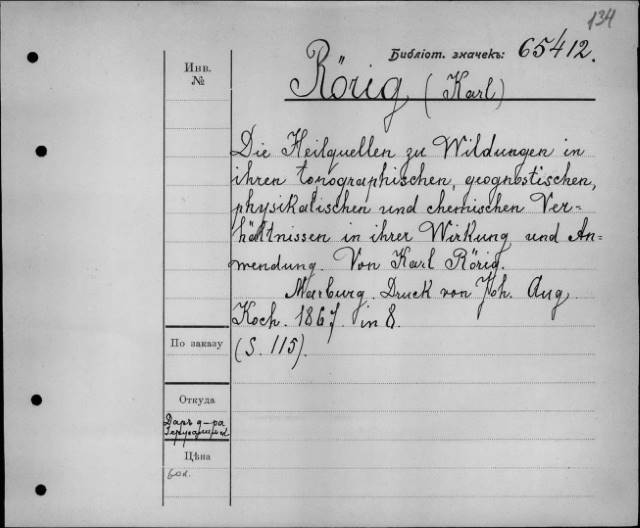 134
Библіот. значекъ: 65412.
Инв.
№
Rörig (Karl)
Die Heilquellen zu Wildungen in
ihren topographischen, geognostischen,
physikalischen und chemischen Ver=
hältnissen in ihrer Wirkung und An=
wendung. Von Karl Rörig.
Marburg. Druck von Joh. Aug.
Koch. 1867. in 8.
По заказу
(S. 115).
Откуда
Даръ д-ра
Цѣна
60к.